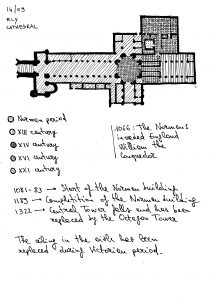 14/03
ELY
CATHEDRAL
Norman period
XIII century
XIV century
XVI century
XXI century
1066: The Normans
invaded England
William the
Conqueror
1081-83 → Start of the Norman building
1189 → Completition of the Norman building
1322 → Central Tower falls and has been
replaced by the Octagon Tower
The ceiling in the aisle has been
replaced during Victorian period.